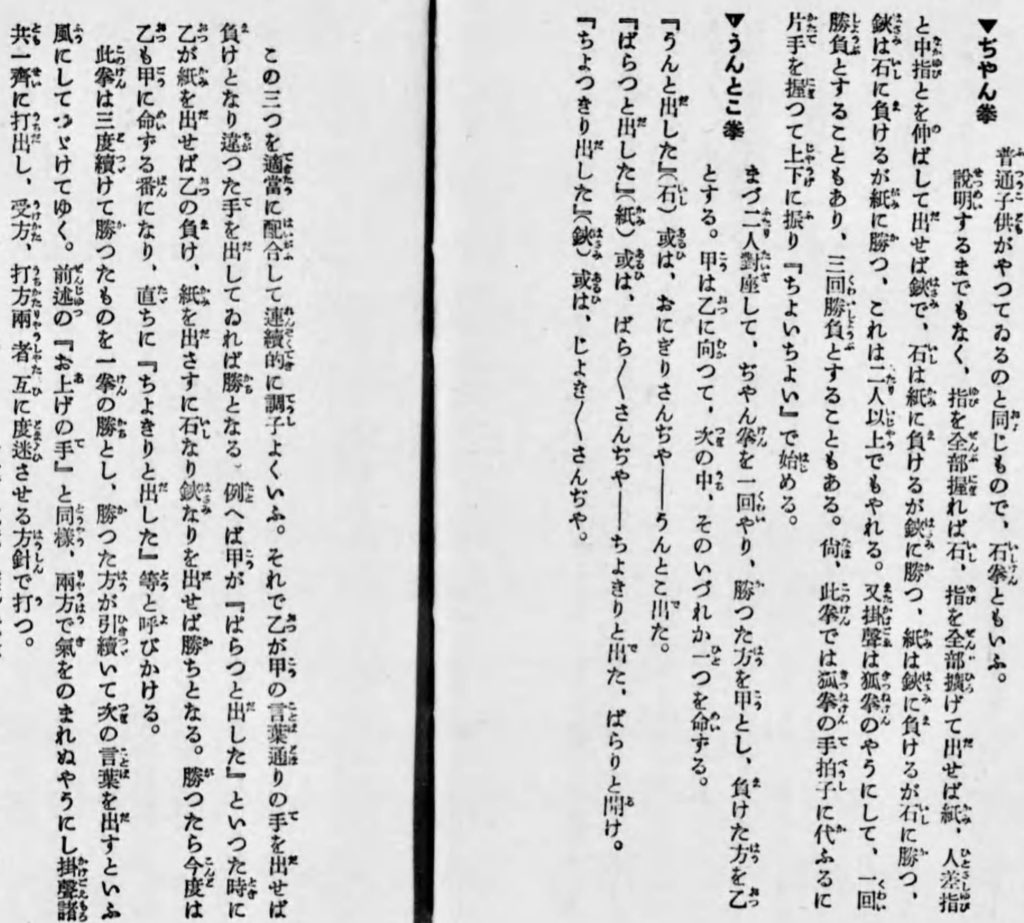 ▼ぢやん拳
普通子供がやつてゐるのと同じもので、石拳ともいふ。
說明するまでもなく、指を全部握れば石、指を全部擴げて出せば紙、人差指
と中指とを伸ばして出せば鋏で、石は紙に負けるが鋏に勝つ、紙は鋏に負けるが石に勝つ、
鋏は石に負けるが紙に勝つ、これは二人以上でもやれる。又掛聲は狐拳のやうにして、一回
勝負とすることもあり、三回勝負とすることもある。尙、此拳では狐拳の手拍子に代ふるに
片手を握つて上下に振り『ちよいちよい』で始める。
▼うんとこ拳
まづ二人對座して、ぢやん拳を一回やり、勝つた方を甲とし、負けた方を乙
とする。甲は乙に向つて、次の中、そのいづれか一つを命ずる。
『うんと出した』(石)或は、おにぎりさんぢや――うんとこ出た。
『ばらつと出した』(紙)或は、ばら〱さんぢや――ちよきりと出た、ばらりと開け。
『ちよつきり出した』(鋏)或は、じよき〱さんぢや。
この三つを適當に配合して連續的に調子よくいふ。それで乙が甲の言葉通りの手を出せば
負けとなり違つた手を出してゐれば勝となる。例へば甲が『ばらつと出した』といつた時に
乙が紙を出せば乙の負け、紙を出さすに石なり鋏なりを出せば勝ちとなる。勝つたら今度は
乙も甲に命ずる番になり、直ちに『ちよきりと出した』等と呼びかける。
此拳は三度續けて勝つたものを一拳の勝とし、勝つた方が引續いて次の言葉を出すといふ
風にしてつゞけてゆく。前述の『お上げの手』と同樣、兩方で氣をのまれぬやうにし掛聲諸
共一齊に打出し、受方、打方兩者互に度迷させる方針で打つ。